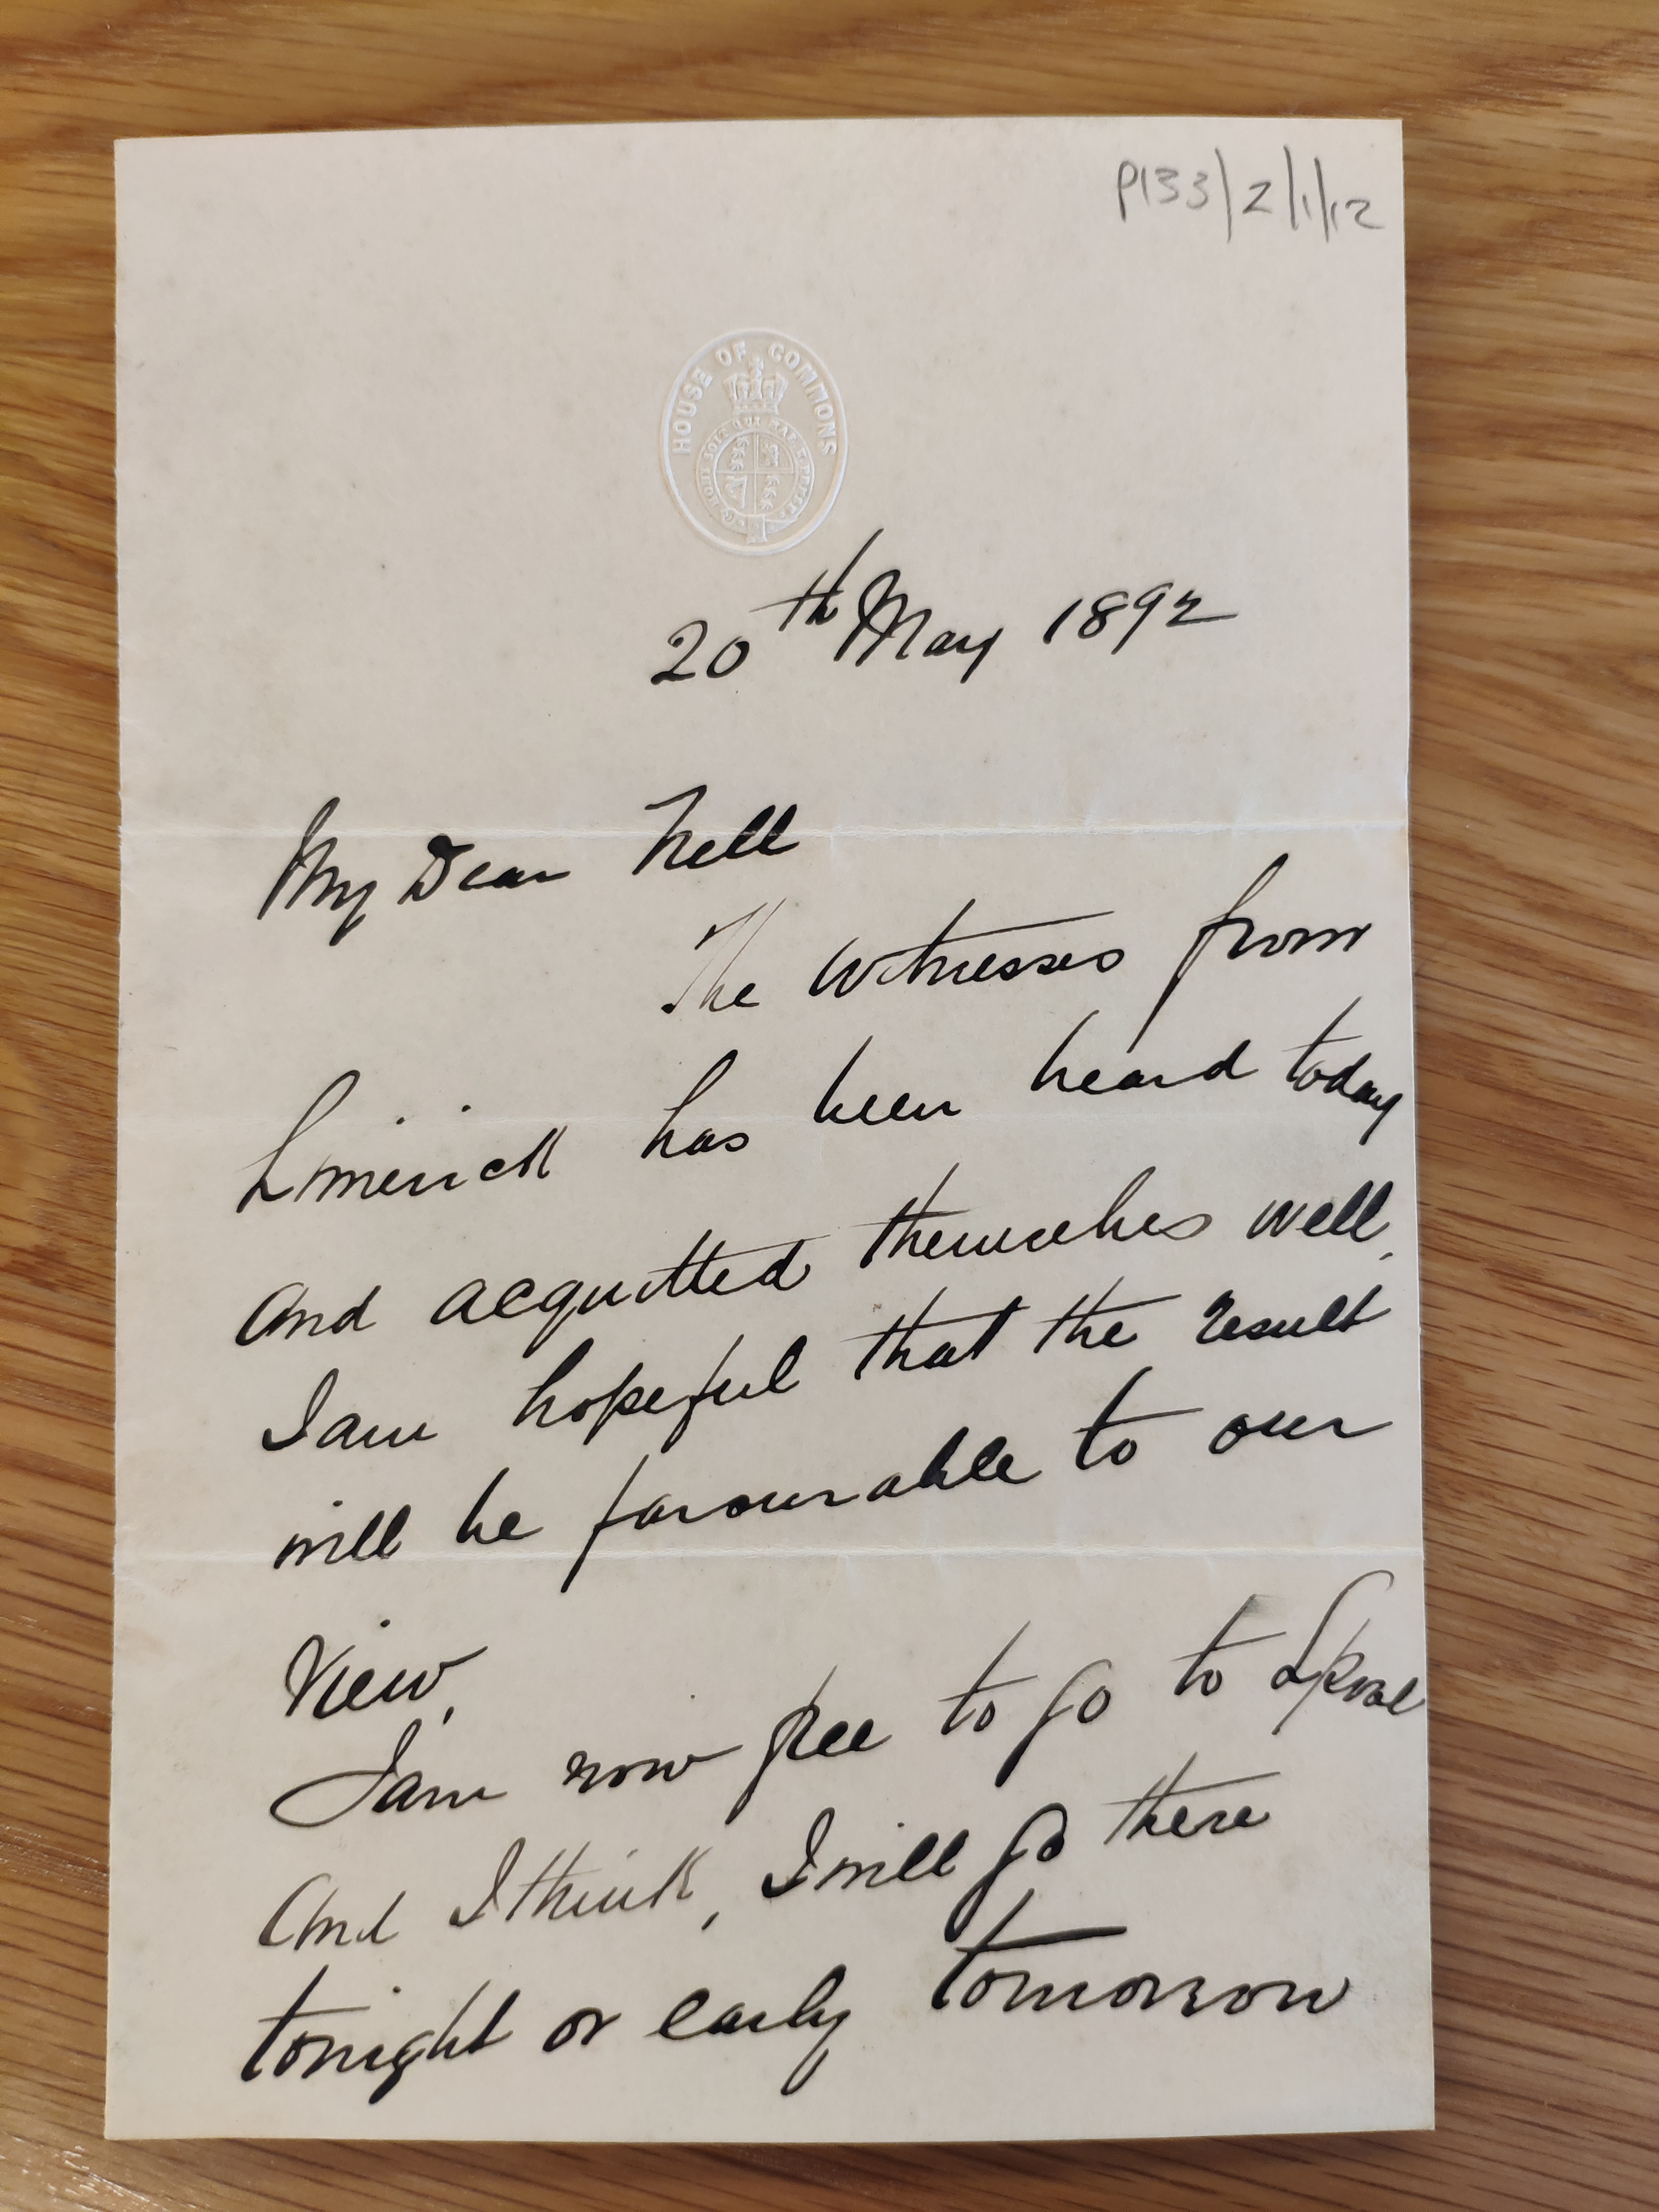 P133/2/1/12
HOUSE OF COMMONS
HONI SOIT QUI MAL Y PENSE
20th May 1892
My Dear Nell
The witnesses from
Limerick has been heard today
and acquitted themselves well.
I am hopeful that the result
will be favourable to our
view.
I am now free to go to
And I think, I will go there
tonight or early tomorrow